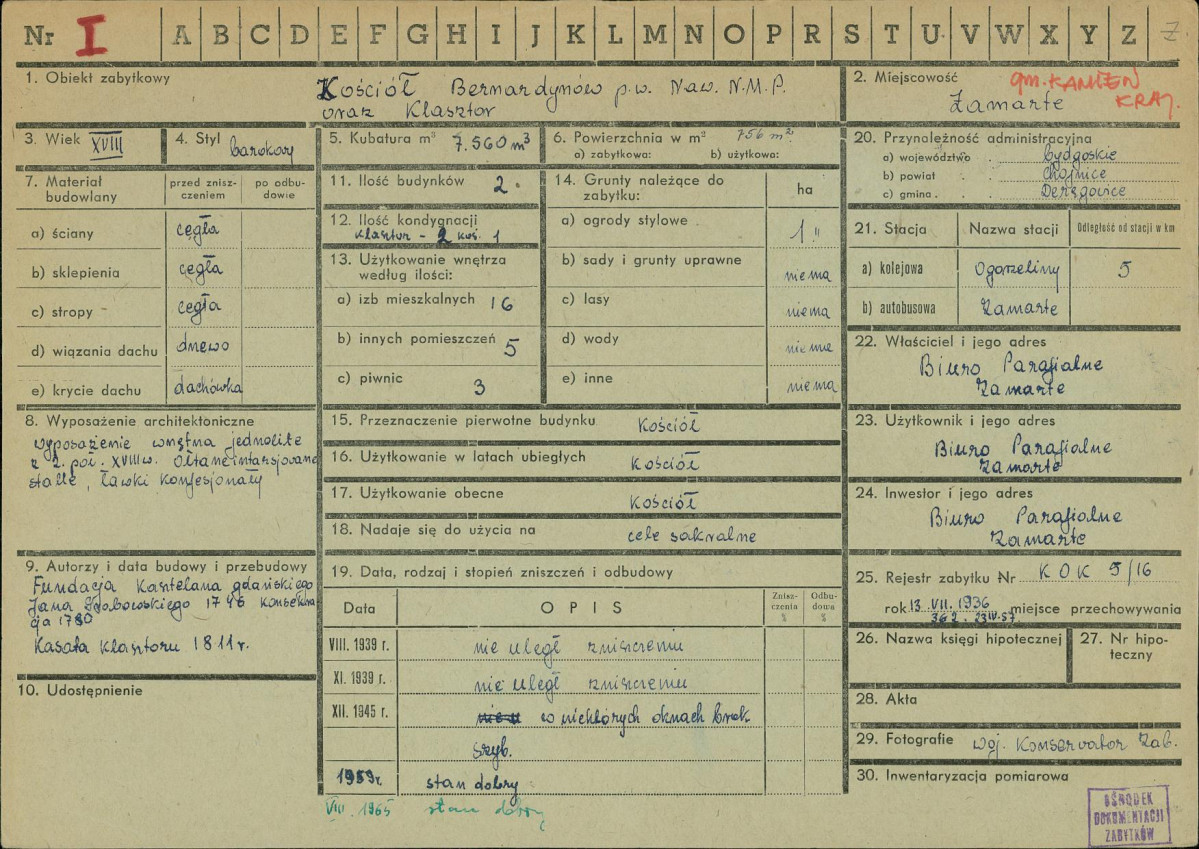 Nr I A B C D E F G H I J K L M N O P R S T U V W X Y Z Z.
1. Obiekt zabytkowy
Kościół Bernardynów p.w. Naw. N.M.P.
oraz Klasztor
2. Miejscowość
gm. KAMIEŃ
KRAJ.
Zamarte
3. Wiek XVIII
4. Styl barokowy
5. Kubatura m³ 7.560 m³
6. Powierzchnia w m² 756 m²
a) zabytkowa: b) użytkowa:
7. Materiał budowlany
przed zniszczeniem
po odbudowie
a) ściany cegła
b) sklepienia cegła
c) stropy cegła
d) wiązania dachu drzewo
e) krycie dachu dachówka
8. Wyposażenie architektoniczne
wyposażenie wnętrza jednolite
z 2. poł. XVIII w. Ołtarze intarsjowane
stalle, ławki konfesjonały
9. Autorzy i data budowy i przebudowy
Fundacja Kasztelana gdańskiego
Jana 1746 konsekra
cja 1780
Kasata Klasztoru 1811 r.
10. Udostępnienie
11. Ilość budynków 2.
12. Ilość kondygnacji
Klasztor - 2 koś. 1
13. Użytkowanie wnętrza
według ilości:
a) izb mieszkalnych 16
b) innych pomieszczeń 5
c) piwnic 3
14. Grunty należące do
zabytku:
ha
a) ogrody stylowe 1 "
b) sady i grunty uprawne nie ma
c) lasy nie ma
d) wody nie ma
e) inne nie ma
15. Przeznaczenie pierwotne budynku Kościół
16. Użytkowanie w latach ubiegłych Kościół
17. Użytkowanie obecne Kościół
18. Nadaje się do użycia na cele sakralne
19. Data, rodzaj i stopień zniszczeń i odbudowy
Data OPIS Zniszczenia % Odbudowa %
VIII. 1939 r. nie uległ zniszczeniu
XI. 1939 r. nie uległ zniszczeniu
XII. 1945 r. w niektórych oknach brak
szyb.
1959 r. stan dobry
VIII. 1965 stan dobry
20. Przynależność administracyjna
a) województwo bydgoskie
b) powiat Chojnice
c) gmina
21. Stacja Nazwa stacji Odległość od stacji w km
a) kolejowa Ogorzeliny 5
b) autobusowa Zamarte
22. Właściciel i jego adres
Biuro Parafialne
Zamarte
23. Użytkownik i jego adres
Biuro Parafialne
Zamarte
24. Inwestor i jego adres
Biuro Parafialne
Zamarte
25. Rejestr zabytku Nr KOK 5/16
rok 13. VII. 1936 miejsce przechowywania
362. 23 IV. 57.
26. Nazwa księgi hipotecznej
27. Nr hipoteczny
28. Akta
29. Fotografie woj. Konserwator Zab.
30. Inwentaryzacja pomiarowa
OŚRODEK
DOKUMENTACJI
ZABYTKÓW